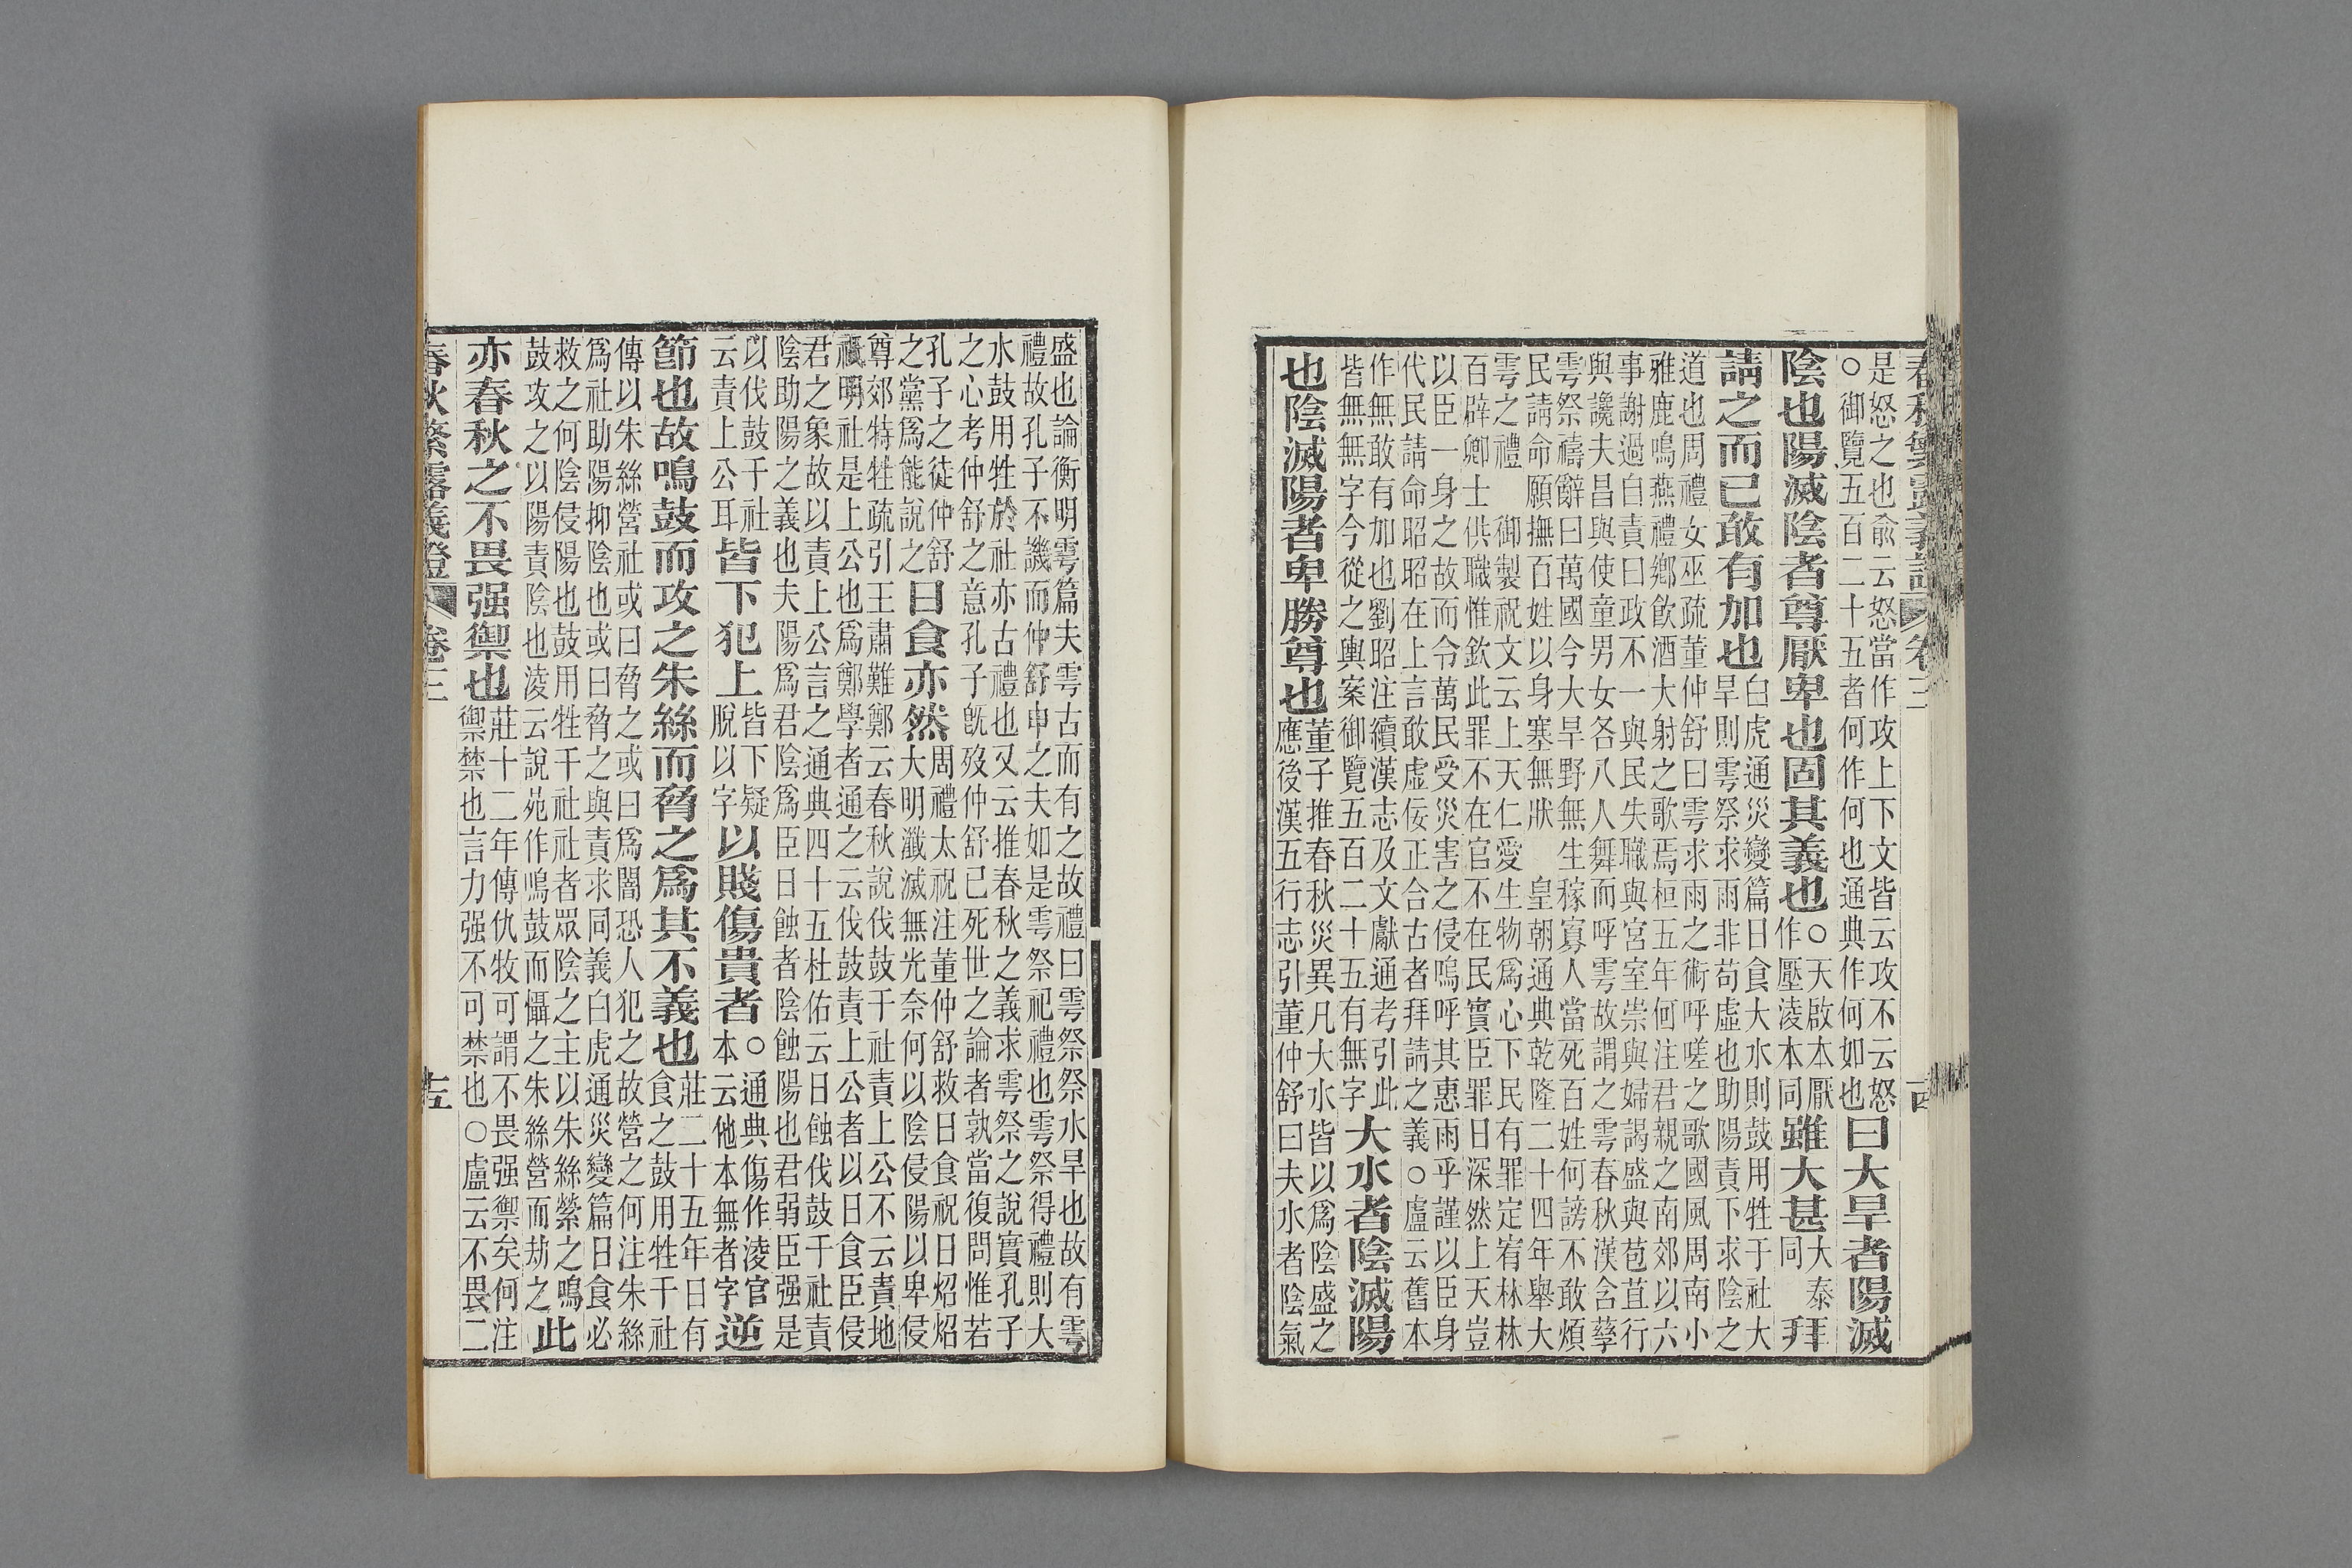 春秋繁露義證 卷三 十四
是怒之也俞云怒當作攻上下文皆云攻不云怒
○御覽五百二十五者何作何也通典作何如也
曰大旱者陽滅
陰也陽滅陰者尊厭卑也固其義也
○天啟本厭
作壓淩本同
雖大甚
大泰
同
拜
請之而已敢有加也
白虎通災變篇日食大水則鼓用牲于社大
旱則雩祭求雨非苟虛也助陽責下求陰之
道也周禮女巫疏董仲舒曰雩求雨之術呼嗟之歌國風周南小
雅鹿鳴燕禮鄉飲酒大射之歌焉桓五年何注君親之南郊以六
事謝過自責曰政不一與民失職與宮室崇與婦謁盛與苞苴行
與讒夫昌與使童男女各八人舞而呼雩故謂之雩春秋漢含孳
雩祭禱辭曰萬國今大旱野無生稼寡人當死百姓何謗不敢煩
民請命願撫百姓以身塞無狀 皇朝通典乾隆二十四年舉大
雩之禮 御製祝文云上天仁愛生物爲心下民有罪定宥林林
百辟卿士供職惟欽此罪不在官不在民實臣罪日深然上天豈
以臣一身之故而令萬民受災害之侵嗚呼其惠雨乎謹以臣身
代民請命昭昭在上言敢虛佞正合古者拜請之義○盧云舊本
作無敢有加也劉昭注續漢志及文獻通考引此
皆無無字今從之輿案御覽五百二十五有無字
大水者陰滅陽
也陰滅陽者卑勝尊也
董子推春秋災異凡大水皆以爲陰盛之
應後漢五行志引董仲舒曰夫水者陰氣
盛也論衡明雩篇夫雩古而有之故禮曰雩祭祭水旱也故有雩
禮故孔子不譏而仲舒申之夫如是雩祭祀禮也雩祭得禮則大
水鼓用牲於社亦古禮也又云推春秋之義求雩祭之說實孔子
之心考仲舒之意孔子旣歿仲舒已死世之論者孰當復問惟若
孔子之徒仲舒
之黨爲能說之
日食亦然
周禮太祝注董仲舒救日食祝曰炤炤
大明瀸滅無光奈何以陰侵陽以卑侵
尊郊特牲疏引王肅難鄭云春秋說伐鼓于社責上公不云責地
祇明社是上公也爲鄭學者通之云伐鼓責上公者以日食臣侵
君之象故以責上公言之通典四十五杜佑云日蝕伐鼓于社責
陰助陽之義也夫陽爲君陰爲臣日蝕者陰蝕陽也君弱臣强是
以伐鼓于社
云責上公耳
皆下犯上
皆下疑
脫以字
以賤傷貴者
○通典傷作淩官
本云他本無者字
逆
節也故鳴鼓而攻之朱絲而脅之爲其不義也
莊二十五年日有
食之鼓用牲于社
傳以朱絲營社或曰脅之或曰爲闇恐人犯之故營之何注朱絲
爲社助陽抑陰也或曰脅之與責求同義白虎通災變篇日食必
救之何陰侵陽也鼓用牲于社社者眾陰之主以朱絲縈之鳴
鼓攻之以陽責陰也淩云說苑作嗚鼓而懾之朱絲營而劫之
此
亦春秋之不畏强禦也
莊十二年傳仇牧可謂不畏强禦矣何注
禦禁也言力强不可禁也○盧云不畏二
春秋繁露義證 卷三 十五